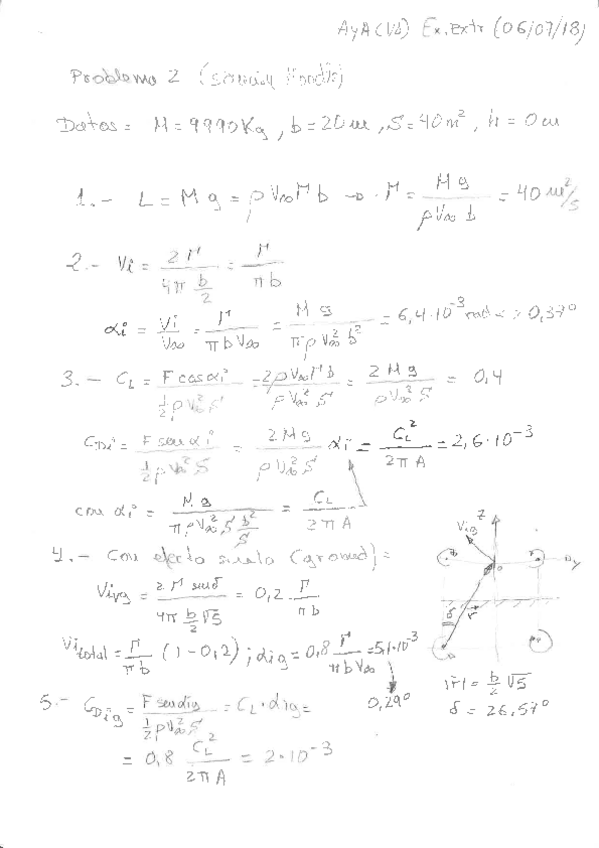 AyA(Vd) Ex.extr (06/07/18)
Problema 2
Datos = M = 9990 Kg, b = 20 m, S = 40 m², h = 0 m
1.- L = M g = ρ V∞ Γ b → Γ = M g / (ρ V∞ b) = 40 m²/s
2.- Vi = 2Γ / (4π b/2) = Γ / (π b)
αi = Vi / V∞ = Γ / (π b V∞) = M g / (π ρ V∞² b²) = 6,4·10⁻³ rad <> 0,37º
3.- CL = F cos αi / (½ ρ V∞² S) = 2 ρ V∞ Γ b / (ρ V∞² S) = 2 M g / (ρ V∞² S) = 0,4
CDi = F sen αi / (½ ρ V∞² S) = 2 M g / (ρ V∞² S) αi = CL² / (2π A) = 2,6·10⁻³
con αi = M g / (π ρ V∞² S b²/S) = CL / (2π A)
4.- Con efecto suelo (ground) =
Vivg = 2 Γ senδ / (4π b/2 √5) = 0,2 Γ / (π b)
Vi total = Γ / (π b) (1 - 0,2) ; αig = 0,8 Γ / (π b V∞) = 5,1·10⁻³
0,29º
Z
Vivg
y
δ
r
|r| = b/2 √5
δ = 26,57º
5.- CDig = F sen αig / (½ ρ V∞² S) = CL · αig =
= 0,8 CL² / (2π A) = 2·10⁻³